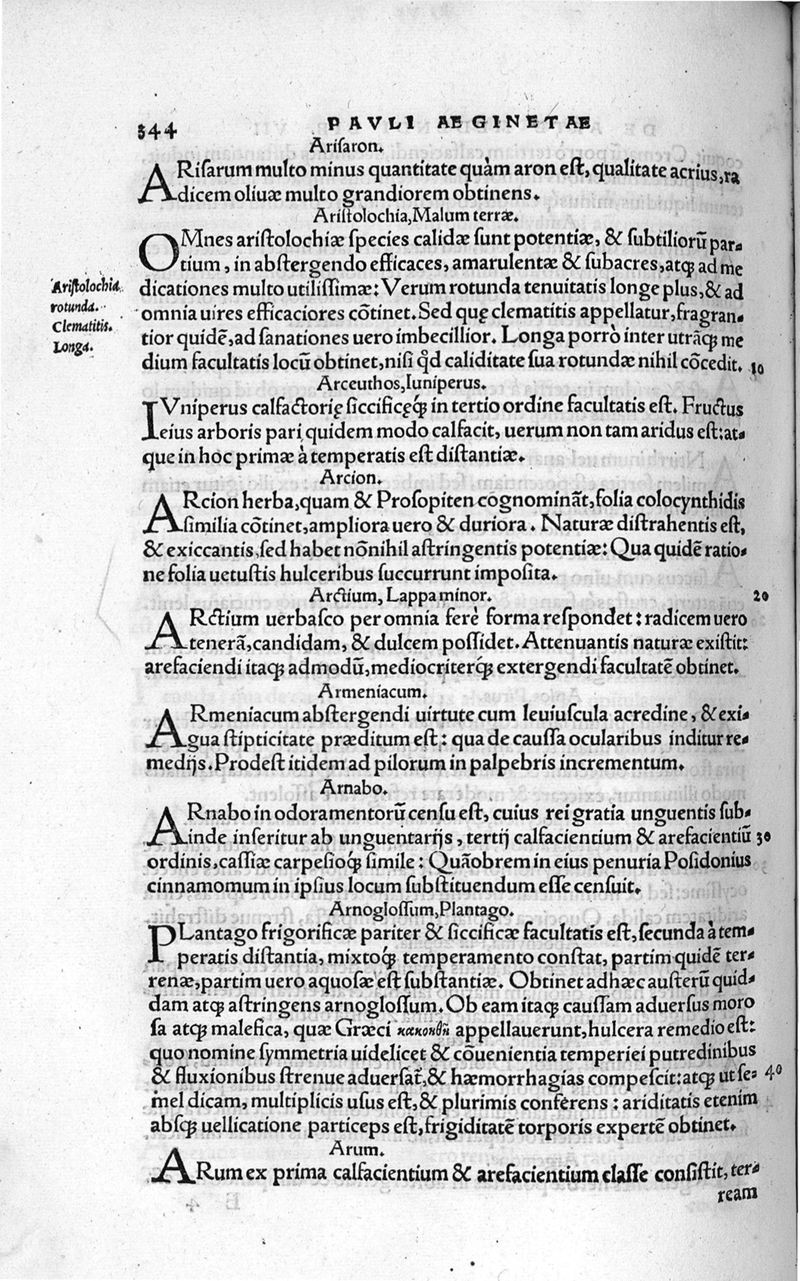 344 PAVLI AEGINETAE
Arisaron.
ARisarum multo minus quantitate quàm aron est, qualitate acrius, ra
dicem oliuæ multo grandiorem obtinens.
Aristolochia, Malum terræ.
OMnes aristolochiæ species calidæ sunt potentiæ, & subtiliorũ par-
tium, in abstergendo efficaces, amarulentæ & subacres, atqꝫ ad me
Aristolochia
dicationes multo utilissimæ: Verum rotunda tenuitatis longe plus, & ad
rotunda.
omnia uires efficaciores cõtinet. Sed quę clematitis appellatur, fragran-
Clematitis.
tior quidẽ, ad sanationes uero imbecillior. Longa porrò inter utrãqꝫ me
Longa.
dium facultatis locũ obtinet, nisi qd̃ caliditate sua rotundæ nihil cõcedit. 10
Arceuthos, Iuniperus.
IVniperus calfactorię siccificęqꝫ́ in tertio ordine facultatis est. Fructus
eius arboris pari quidem modo calfacit, uerum non tam aridus est: at-
que in hoc primæ à temperatis est distantiæ.
Arcion.
ARcion herba, quam & Prosopiten cognominãt, folia colocynthidis
similia cõtinet, ampliora uero & duriora. Naturæ distrahentis est,
& exiccantis, sed habet nõnihil astringentis potentiæ: Qua quidẽ ratio-
ne folia uetustis hulceribus succurrunt imposita.
Arctium, Lappa minor. 20
ARctium uerbasco per omnia ferè forma respondet: radicem uero
tenerã, candidam, & dulcem possidet. Attenuantis naturæ existit:
arefaciendi itaqꝫ admodũ, mediocriterqꝫ́ extergendi facultatẽ obtinet.
Armeniacum.
ARmeniacum abstergendi uirtute cum leuiuscula acredine, & exi-
gua stipticitate præditum est: qua de caussa ocularibus inditur re-
medijs. Prodest itidem ad pilorum in palpebris incrementum.
Arnabo.
ARnabo in odoramentorũ censu est, cuius rei gratia unguentis sub-
inde inseritur ab unguentarijs, tertij calfacientium & arefacientiũ 30
ordinis, cassiæ carpesioqꝫ́ simile: Quãobrem in eius penuria Posidonius
cinnamomum in ipsius locum substituendum esse censuit.
Arnoglossum, Plantago.
PLantago frigorificæ pariter & siccificæ facultatis est, secunda à tem-
peratis distantia, mixtoqꝫ́ temperamento constat, partim quidẽ ter-
renæ, partim uero aquosæ est substantiæ. Obtinet adhæc austerũ quid-
dam atqꝫ astringens arnoglossum. Ob eam itaqꝫ caussam aduersus moro
sa atqꝫ malefica, quæ Græci κακοήθη appellauerunt, hulcera remedio est:
quo nomine symmetria uidelicet & cõuenientia temperiei putredinibus
& fluxionibus strenue aduersat̃, & hæmorrhagias compescit: atqꝫ ut se- 40
mel dicam, multiplicis usus est, & plurimis conferens: ariditatis etenim
absqꝫ uellicatione particeps est, frigiditatẽ torporis expertẽ obtinet.
Arum.
ARum ex prima calfacientium & arefacientium classe consistit, ter-
ream